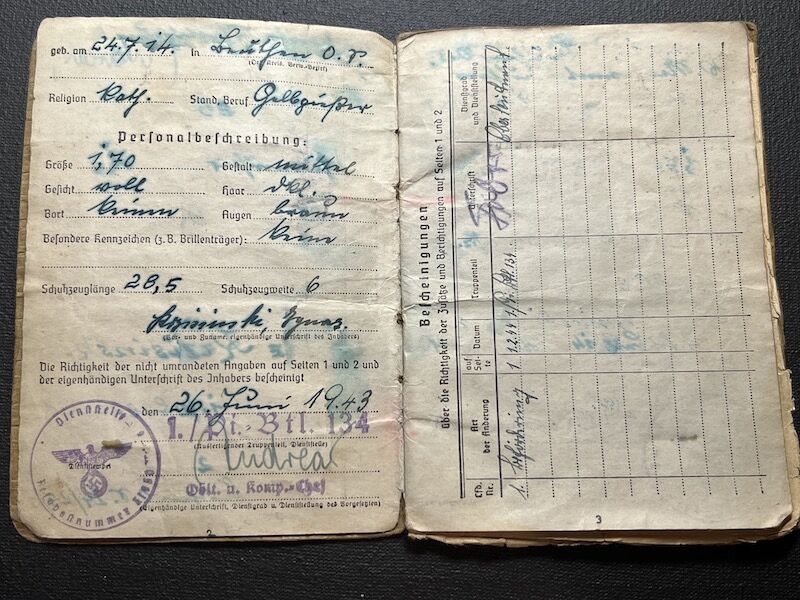 geb. am 24.7.14. in Beuthen O.S.
(Ort, Kreis, Verw.-Bezirk)
Religion kath. Stand, Beruf Gelbgießer
Personalbeschreibung:
Größe 1,70 Gestalt mittel
Gesicht voll Haar dkl.
Bart keinen Augen braun
Besondere Kennzeichen (z. B. Brillenträger): kein
Schuhzeuglänge 28,5 Schuhzeugweite 6
(Vor- und Zuname, eigenhändige Unterschrift des Inhabers)
Die Richtigkeit der nicht umrandeten Angaben auf Seiten 1 und 2 und
der eigenhändigen Unterschrift des Inhabers bescheinigt
den 26. Juni 1943
1./Pi.-Btl. 134
(Ausfertigender Truppenteil, Dienststelle)
Dienststempel
Oblt. u. Komp.-Chef
(Eigenhändige Unterschrift, Dienstgrad u. Dienststellung des Vorgesetzten)
2
Bescheinigungen
über die Richtigkeit der Zusätze und Berichtigungen auf Seiten 1 und 2
Lfd. Nr.
Art der Änderung
auf Sei- te
Datum
Truppenteil
Unterschrift
Dienstgrad und Dienststellung
1. Beförderung 1. 1.2.44 1./Pi. Btl. 134. Oberleutnant
3